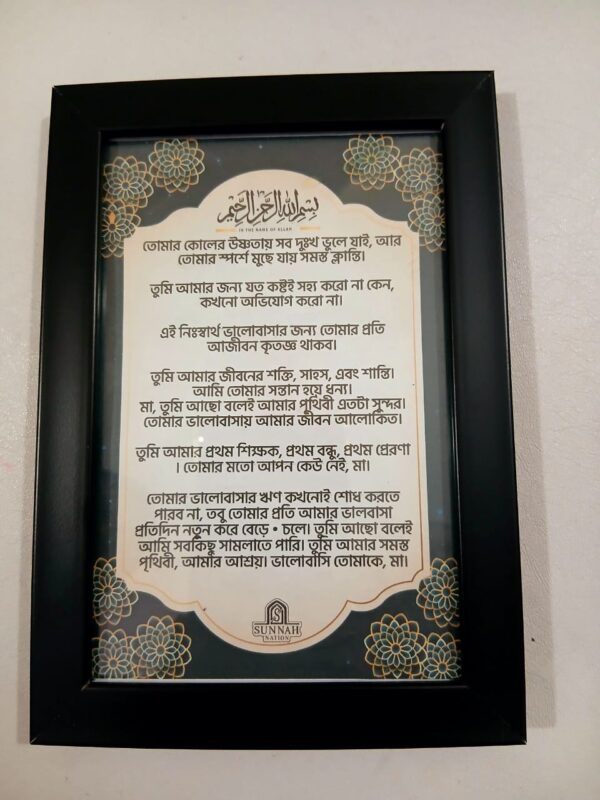 بسم الله الرحمن الرحيم
IN THE NAME OF ALLAH
তোমার কোলের উষ্ণতায় সব দুঃখ ভুলে যাই, আর
তোমার স্পর্শে মুছে যায় সমস্ত ক্লান্তি।
তুমি আমার জন্য যত কষ্টই সহ্য করো না কেন,
কখনো অভিযোগ করো না।
এই নিঃস্বার্থ ভালোবাসার জন্য তোমার প্রতি
আজীবন কৃতজ্ঞ থাকব।
তুমি আমার জীবনের শক্তি, সাহস, এবং শান্তি।
আমি তোমার সন্তান হয়ে ধন্য।
মা, তুমি আছো বলেই আমার পৃথিবী এতটা সুন্দর।
তোমার ভালোবাসায় আমার জীবন আলোকিত।
তুমি আমার প্রথম শিক্ষক, প্রথম বন্ধু, প্রথম প্রেরণা
। তোমার মতো আপন কেউ নেই, মা।
তোমার ভালোবাসার ঋণ কখনোই শোধ করতে
পারব না, তবু তোমার প্রতি আমার ভালবাসা
প্রতিদিন নতুন করে বেড়ে • চলে। তুমি আছো বলেই
আমি সবকিছু সামলাতে পারি। তুমি আমার সমস্ত
পৃথিবী, আমার আশ্রয়। ভালোবাসি তোমাকে, মা।
SUNNAH
NATION